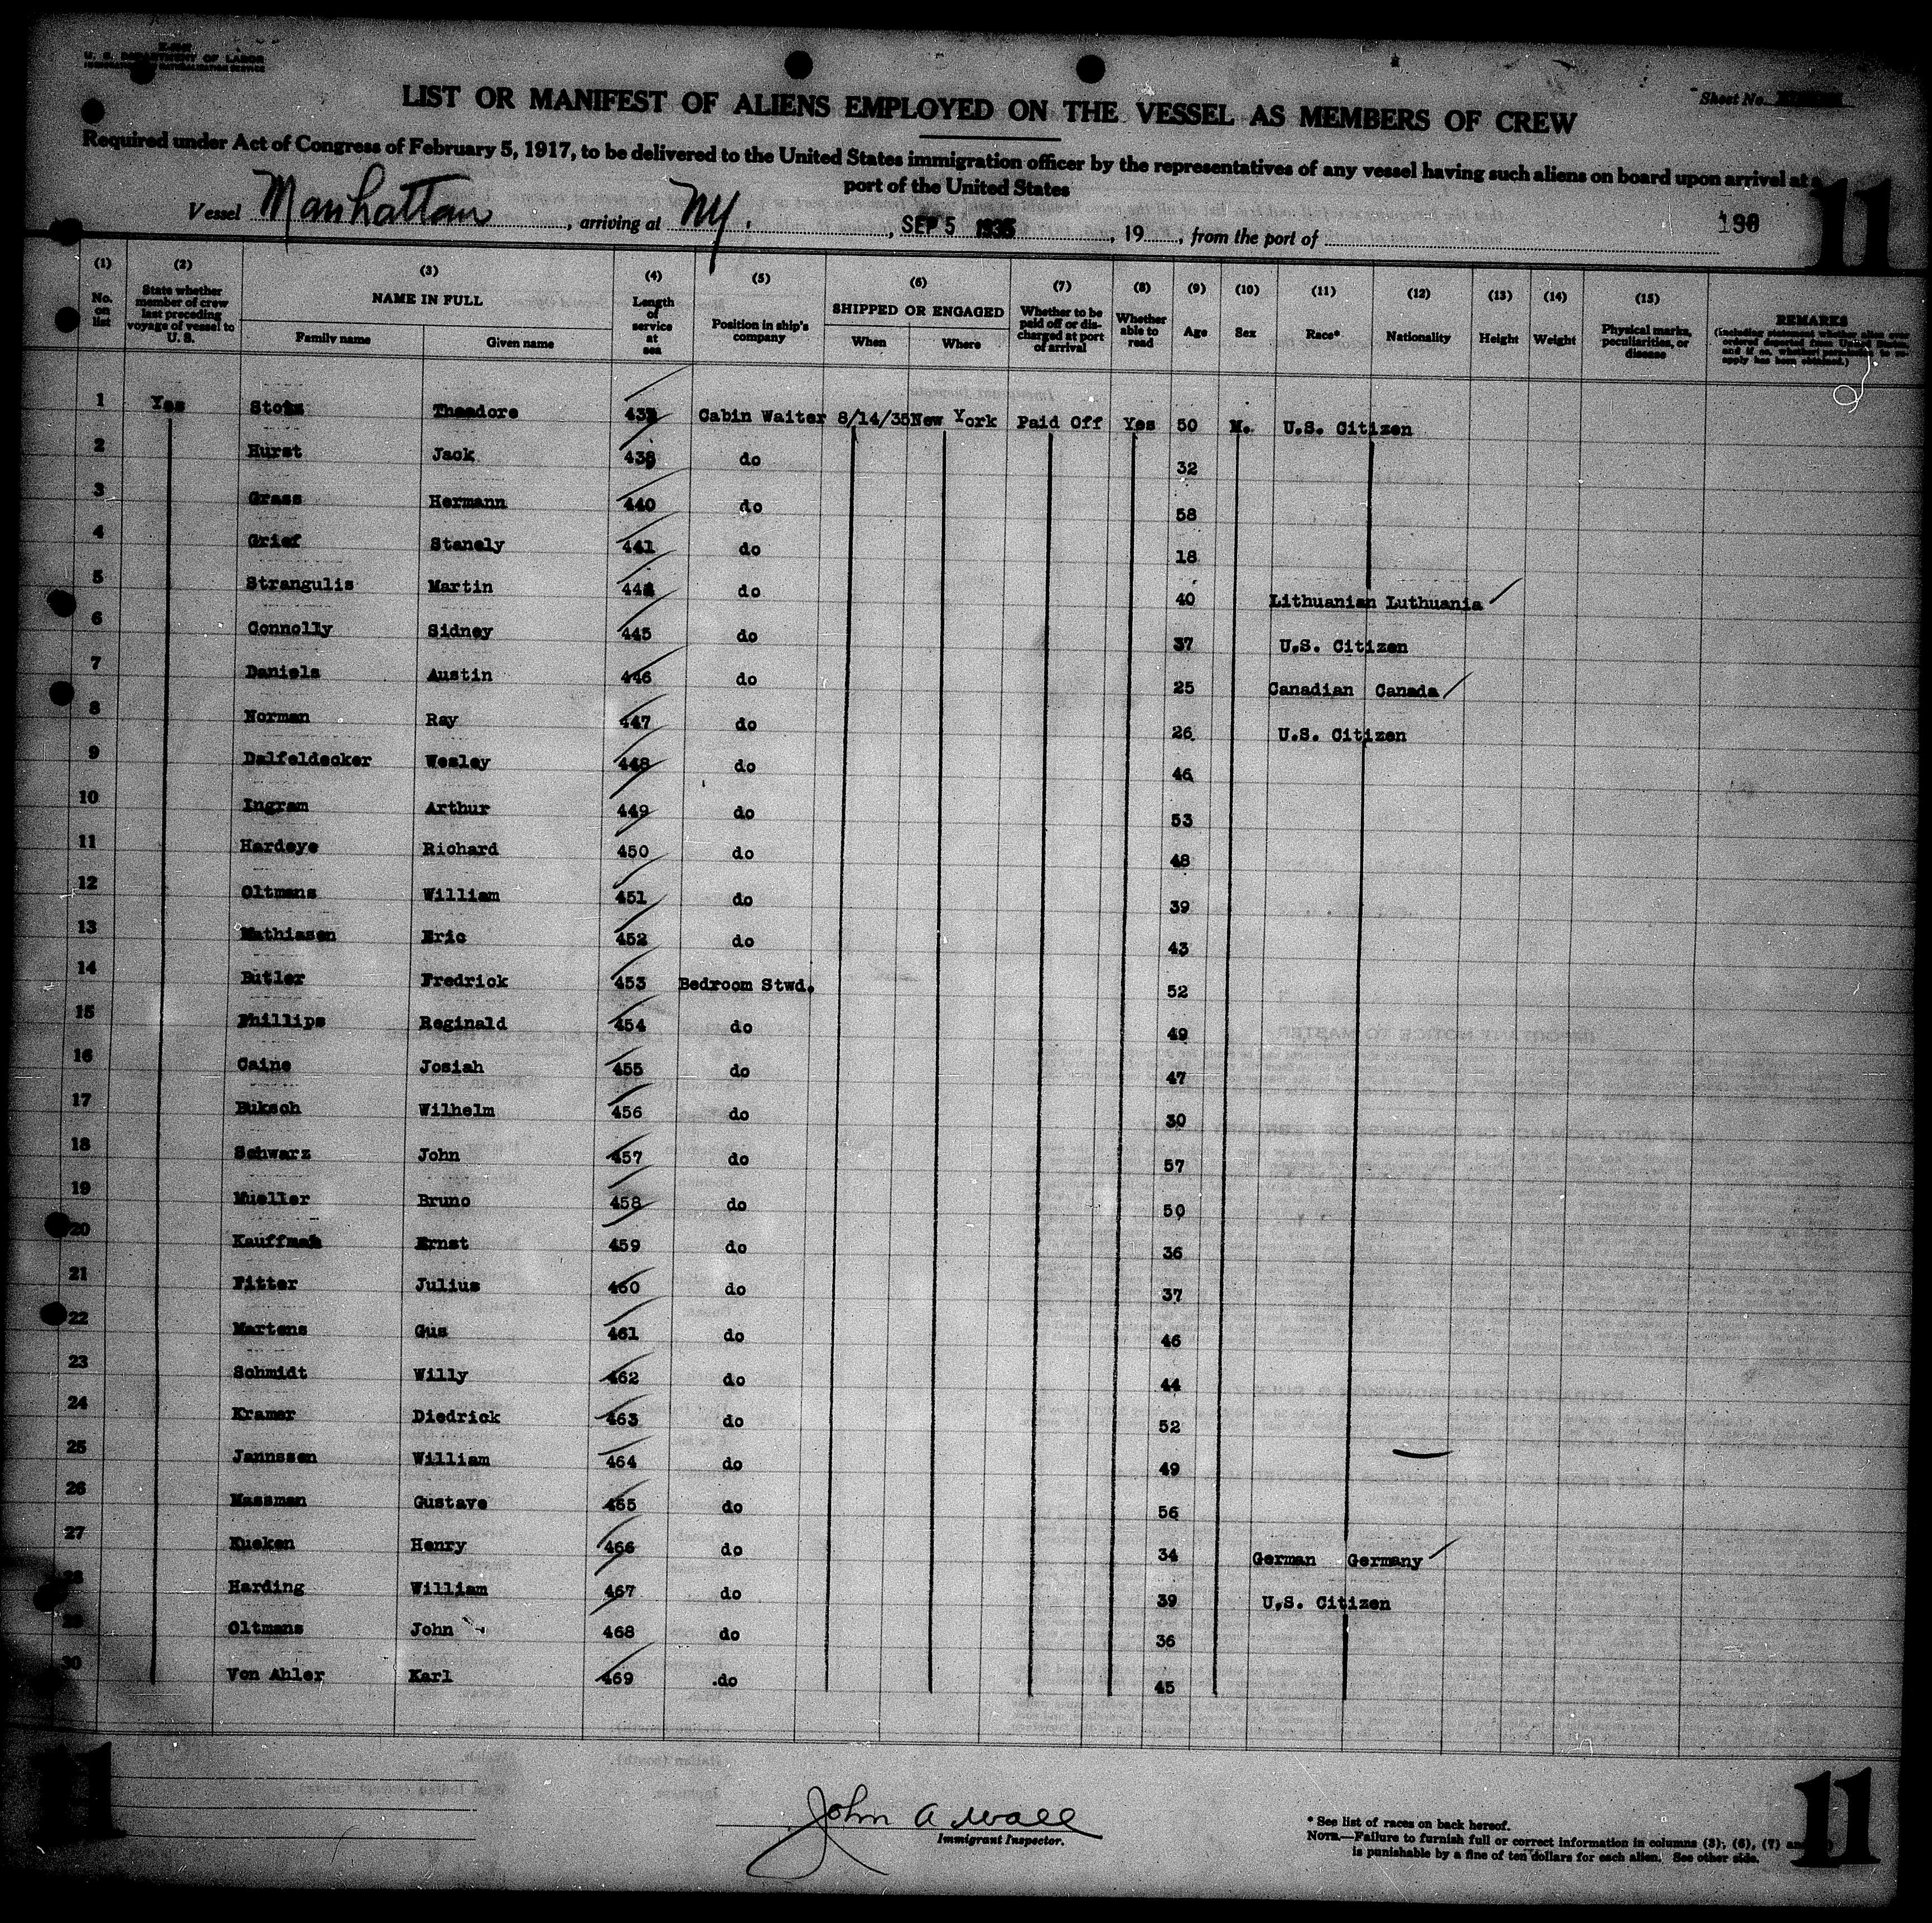 U. S. DEPARTMENT OF LABOR
Sheet No.
LIST OR MANIFEST OF ALIENS EMPLOYED ON THE VESSEL AS MEMBERS OF CREW
Required under Act of Congress of February 5, 1917, to be delivered to the United States immigration officer by the representatives of any vessel having such aliens on board upon arrival at a
port of the United States
11
Vessel Manhattan, arriving at NY., SEP 5 1935, 19, from the port of
190
(1) No. on list
(2) State whether member of crew last preceding voyage of vessel to U. S.
(3) NAME IN FULL Family name Given name
(4) Length of service at sea
(5) Position in ship's company
(6) SHIPPED OR ENGAGED When Where
(7) Whether to be paid off or discharged at port of arrival
(8) Whether able to read
(9) Age
(10) Sex
(11) Race*
(12) Nationality
(13) Height
(14) Weight
(15) Physical marks, peculiarities, or disease
REMARKS (including statement whether alien ever ordered deported from United States and if so, whether permission to reapply has been obtained.)
1 Yes Theodore Cabin Waiter 8/14/35 New York Paid Off Yes 50 M. U.S. Citizen
2 Hurst Jack do 32
3 Grass Hermann 440 do 58
4 Grief Stanely 441 do 18
5 Strangulis Martin do 40 Lithuanian Luthuania
6 Connolly Sidney 445 do 37 U.S. Citizen
7 Daniels Austin 446 do 25 Canadian Canada
8 Norman Ray 447 do 26 U.S. Citizen
9 Dalfeldecker Wesley 448 do 46
10 Ingram Arthur 449 do 53
11 Hardeye Richard 450 do 48
12 Oltmans William 451 do 39
13 Mathiasen Eric 452 do 43
14 Butler Fredrick 453 Bedroom Stwd. 52
15 Phillips Reginald 454 do 49
16 Caine Josiah 455 do 47
17 Buksch Wilhelm 456 do 30
18 Schwarz John 457 do 57
19 Mueller Bruno 458 do 50
20 Kauffman Ernst 459 do 36
21 Fitter Julius 460 do 37
22 Martens Gus 461 do 46
23 Schmidt Willy 462 do 44
24 Kramer Diedrick 463 do 52
25 Jannssen William 464 do 49
26 Massman Gustave 465 do 56
27 Kueken Henry 466 do 34 German Germany
28 Harding William 467 do 39 U.S. Citizen
29 Oltmans John 468 do 36
30 Von Ahler Karl 469 do 45
11
John A Wall
Immigrant Inspector.
* See list of races on back hereof.
NOTE.—Failure to furnish full or correct information in columns (3), (6), (7) and
is punishable by a fine of ten dollars for each alien. See other side.
11